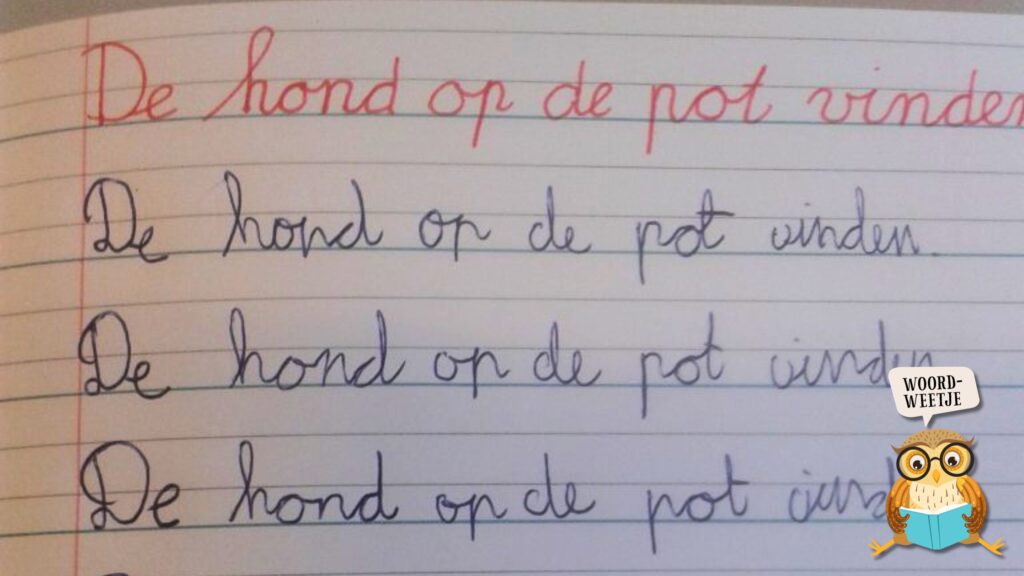 De hond op de pot vinden
De hond op de pot vinden.
De hond op de pot vinden
De hond op de pot vind
WOORD-
WEETJE